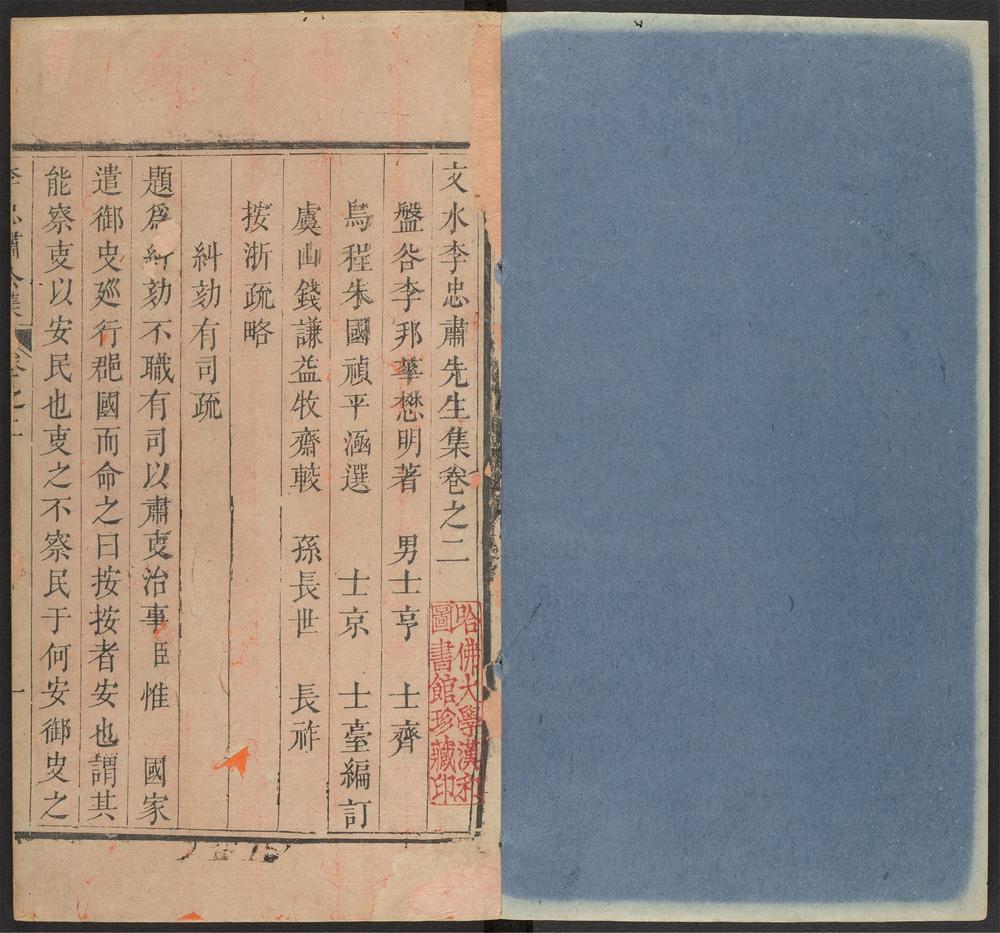 文水李忠肅先生集卷之二
盤谷李邦華懋明著　男士亨　士齊
烏程朱國禎平涵選　士京　士臺編訂
虞山錢謙益牧齋較　孫長世　長祚
按浙疏略
糾劾有司疏
題爲糾劾不職有司以肅吏治事臣惟　國家
遣御史廵行郡國而命之曰按按者安也謂其
能察吏以安民也吏之不察民于何安御史之
李忠肅公集　卷之二　一
哈佛大學漢和
圖書館珍藏印